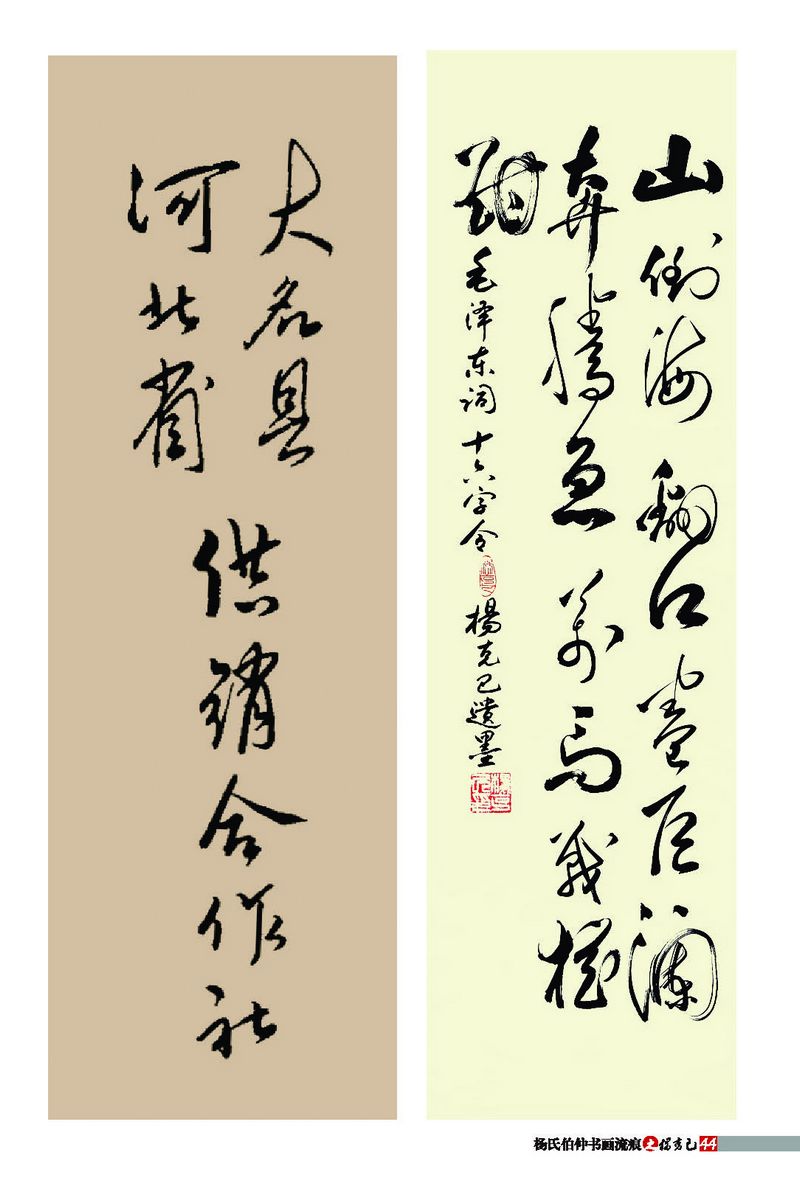 山倒海翻江卷巨澜
奔腾急萬马战犹
酣
毛泽东词十六字令 楊克己遺墨
河北省
大名县
供销合作社
杨氏伯仲书画流痕之楊克己 44